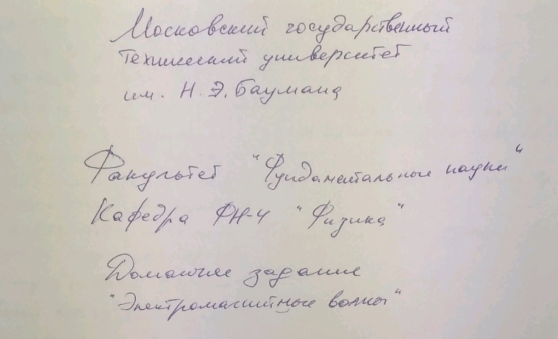 Московский государственный
технический университет
им. Н.Э. Баумана
Факультет "Фундаментальные науки"
Кафедра ФН-4 "Физика"
Домашнее задание
"Электромагнитные волны"